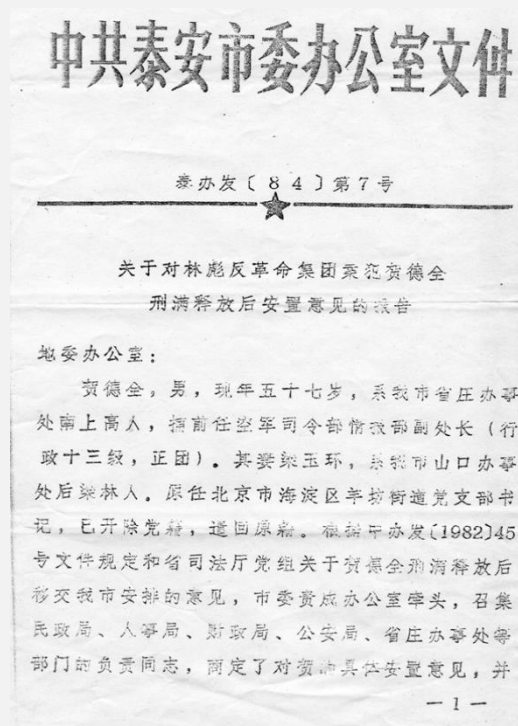 中共泰安市委办公室文件
泰办发〔84〕第7号
关于对林彪反革命集团案犯贺德全
刑满释放后安置意见的报告
地委办公室：
贺德全，男，现年五十七岁，系我市省庄办事
处南上高人，捕前任空军司令部情报部副处长（行
政十三级，正团）。其妻梁玉环，系我市山口办事
处后梁林人。原任北京市海淀区羊坊街道党支部书
记，已开除党籍，遣回原籍。根据中办发〔1982〕45
号文件规定和省司法厅党组关于贺德全刑满释放后
移交我市安排的意见，市委责成办公室牵头，召集
民政局、人事局、财政局、公安局、省庄办事处等
部门的负责同志，商定了对贺的具体安置意见，并
—1—